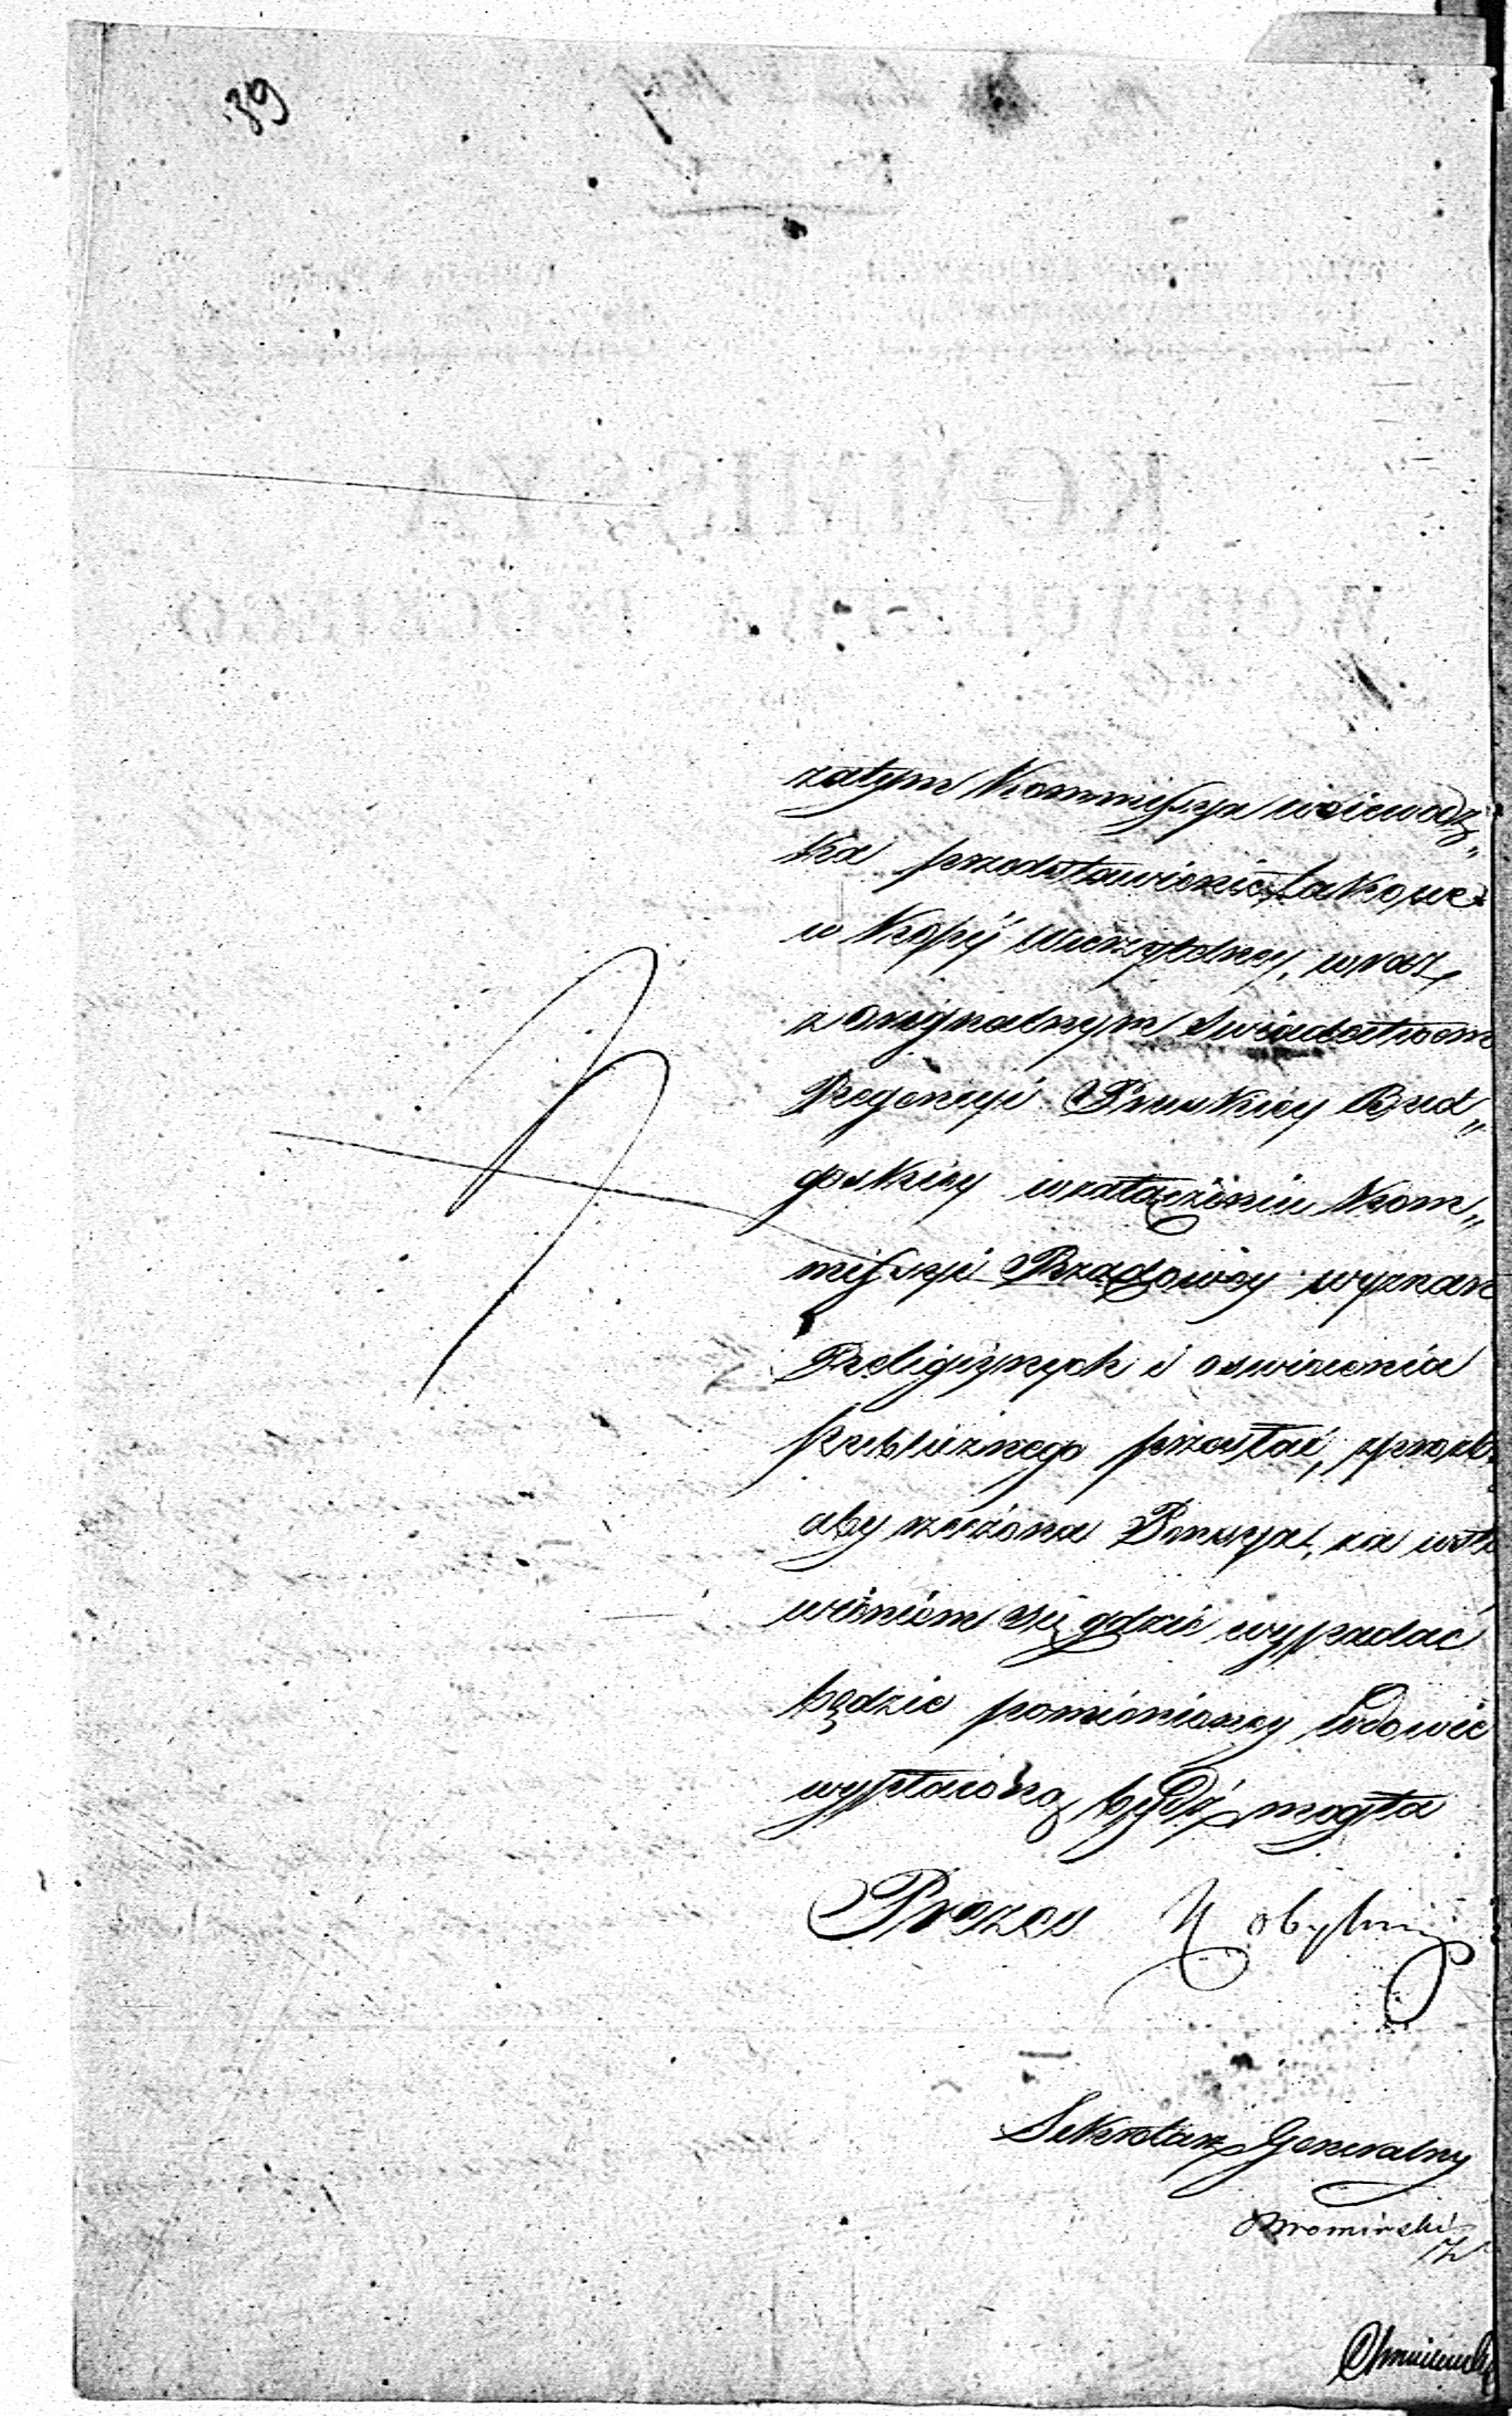 39
zatym Kommissya woiewodz„
ka przedstawienie takowe
w Kopÿ wierzytelney, wraz
z oryginalnym swiadectwem
Regencyi Pruskiey Byd„
goskiey w załączeniu Kom„
missyi Rządowey wyznań
Religiynych i oswiecenia
publicznego przesłać, z proźb
aby rzeczona Pensya, za
wieniem się gdzie wypadać
będzie pomienioney Wdowie
wypłaconą bydź mogła
Prezes Kobyliń
Sekretarz Generalny